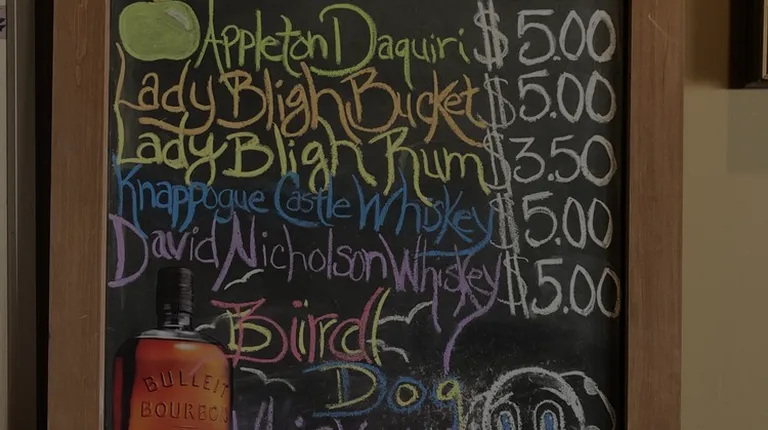 Appleton Daquiri $5.00
Lady Bligh Bucket $5.00
Lady Bligh Rum $3.50
Knappogue Castle Whiskey $5.00
David Nicholson Whiskey $5.00
Bird
Dog
BULLEIT
BOURBON